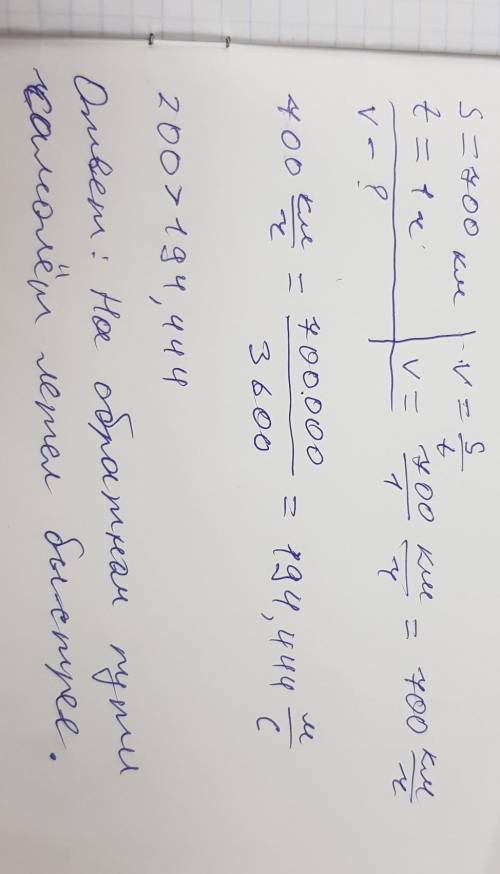 S = 700 км | V = S/t
t = 1 ч. | V = 700/1 км/ч = 700 км/ч
V - ?
700 км/ч = 700.000/3600 = 194,444 м/с
200 > 194,444
Ответ: На обратном пути
самолёт летел быстрее.